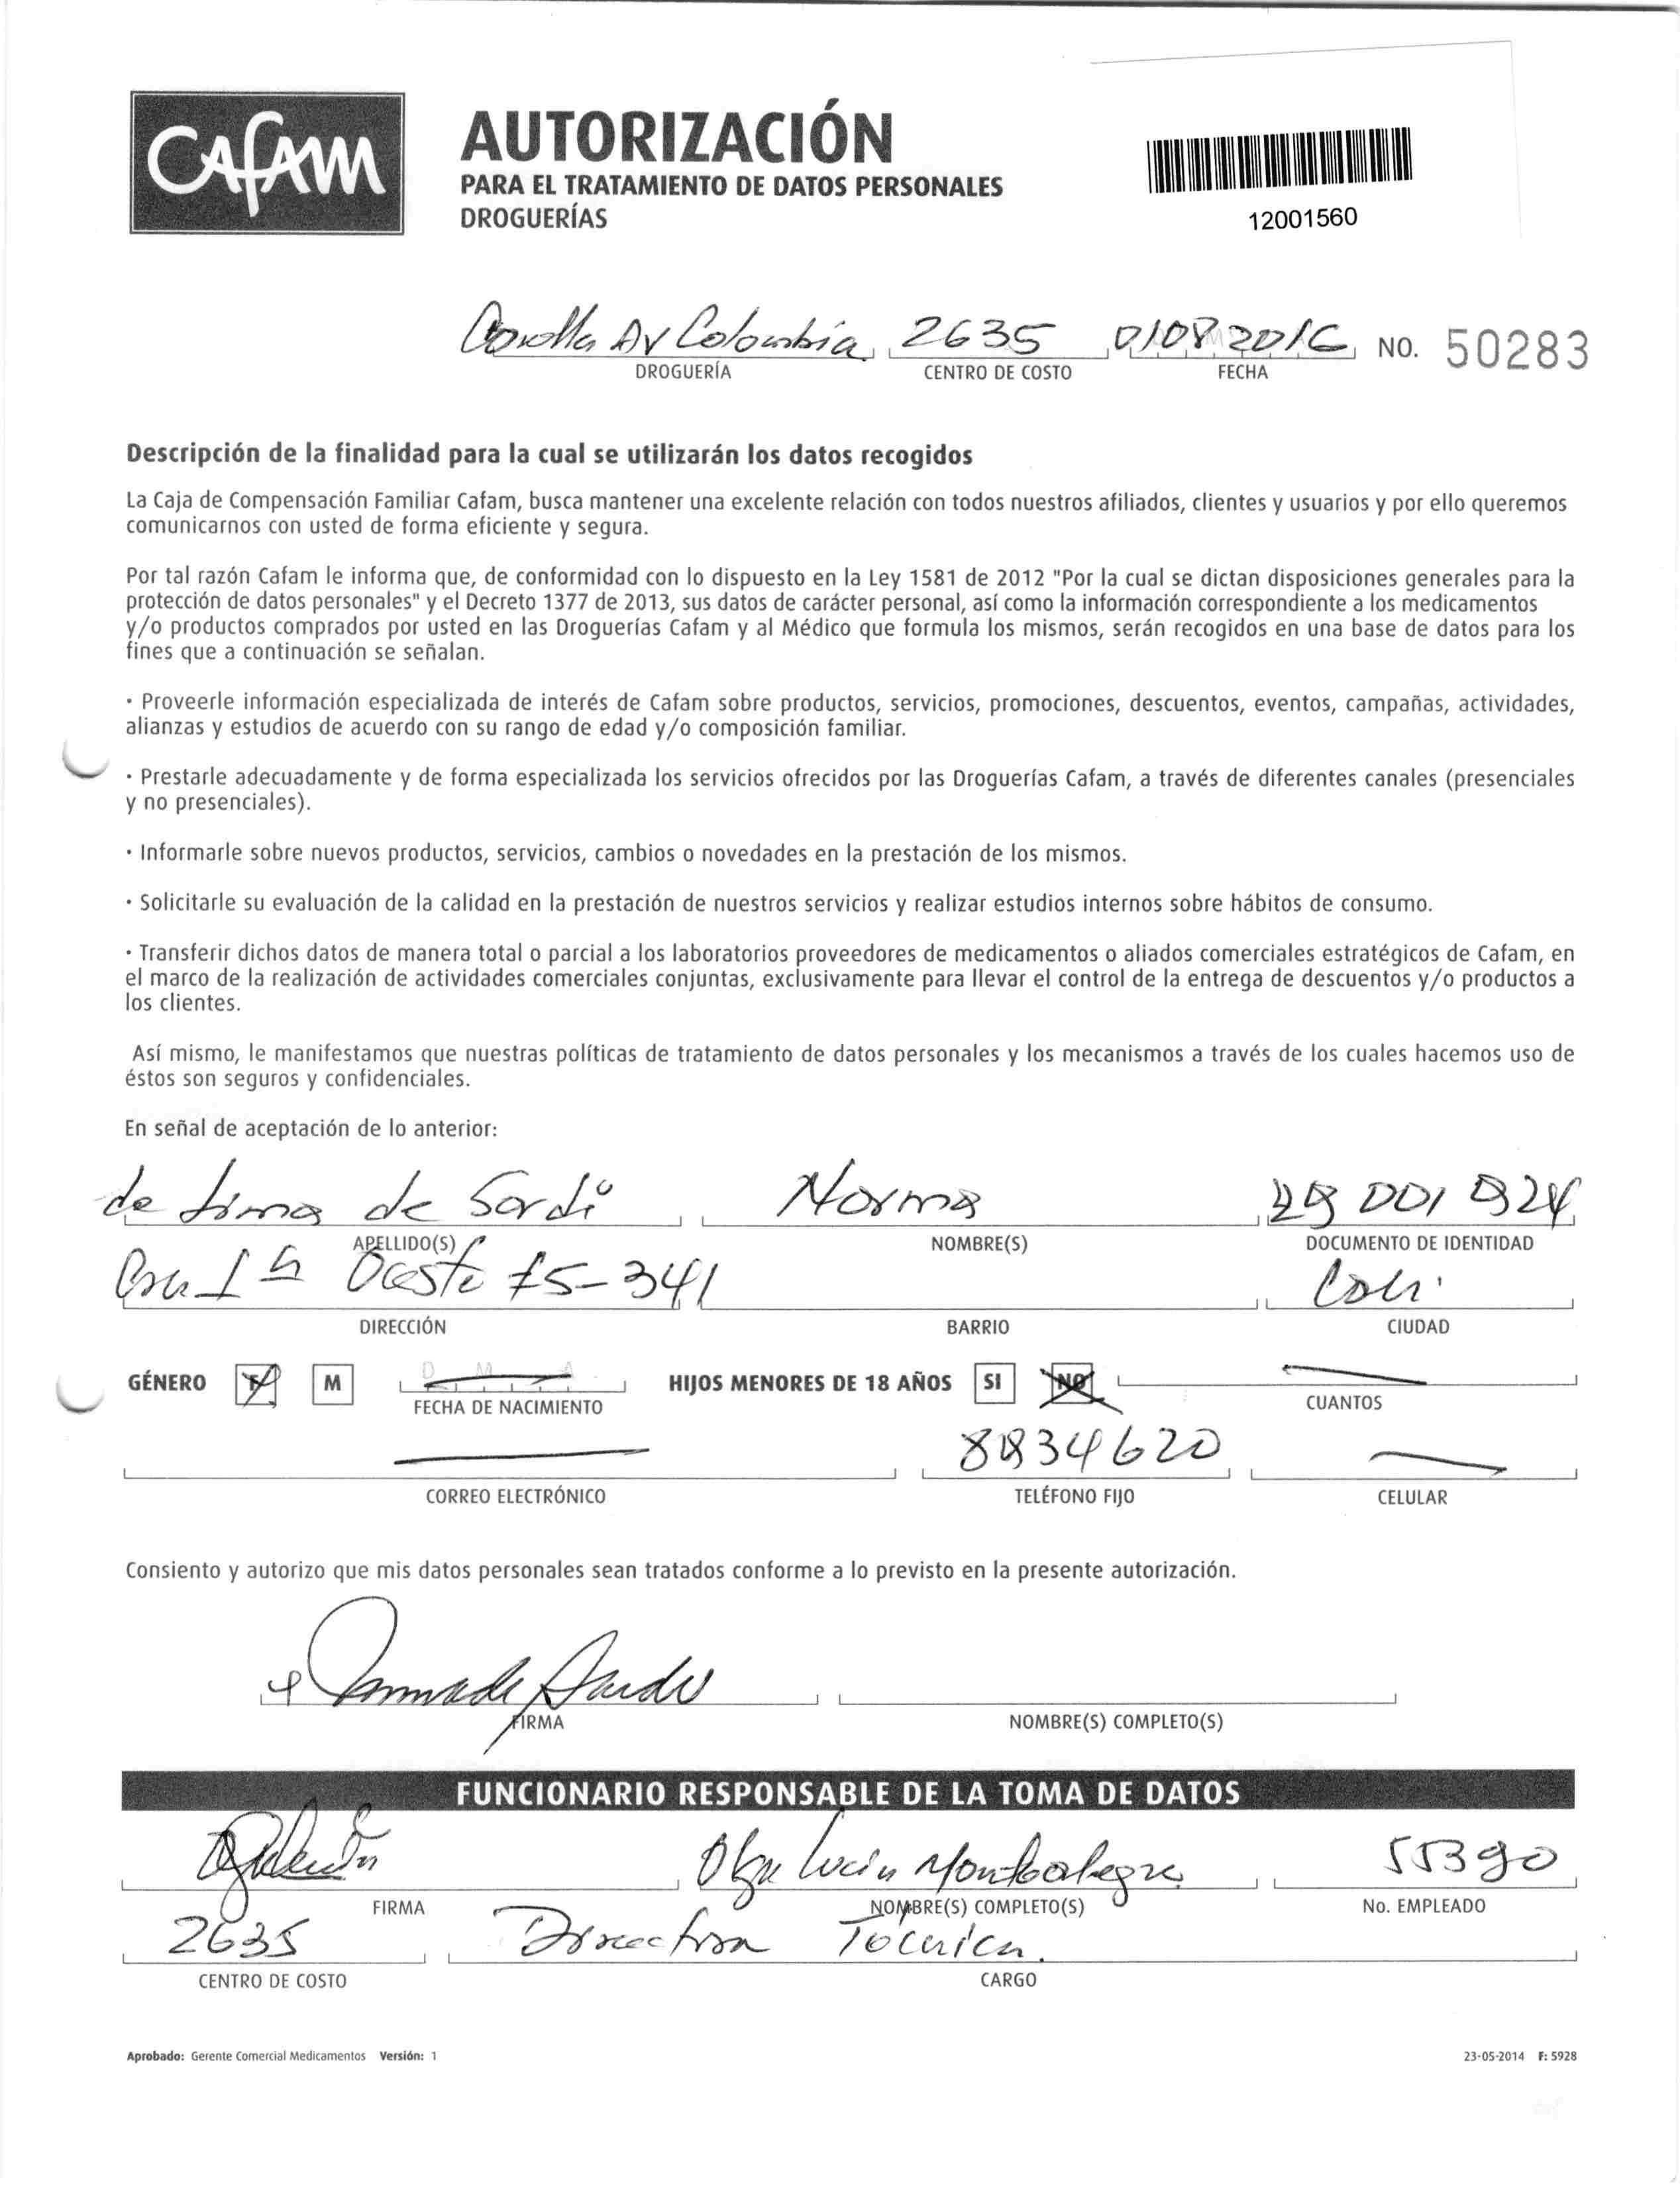 Cafam
AUTORIZACIÓN
PARA EL TRATAMIENTO DE DATOS PERSONALES
DROGUERÍAS
12001560
Av Colombia 2635 01082016 NO. 50283
DROGUERÍA CENTRO DE COSTO FECHA
Descripción de la finalidad para la cual se utilizarán los datos recogidos
La Caja de Compensación Familiar Cafam, busca mantener una excelente relación con todos nuestros afiliados, clientes y usuarios y por ello queremos
comunicarnos con usted de forma eficiente y segura.
Por tal razón Cafam le informa que, de conformidad con lo dispuesto en la Ley 1581 de 2012 "Por la cual se dictan disposiciones generales para la
protección de datos personales" y el Decreto 1377 de 2013, sus datos de carácter personal, así como la información correspondiente a los medicamentos
y/o productos comprados por usted en las Droguerías Cafam y al Médico que formula los mismos, serán recogidos en una base de datos para los
fines que a continuación se señalan.
· Proveerle información especializada de interés de Cafam sobre productos, servicios, promociones, descuentos, eventos, campañas, actividades,
alianzas y estudios de acuerdo con su rango de edad y/o composición familiar.
· Prestarle adecuadamente y de forma especializada los servicios ofrecidos por las Droguerías Cafam, a través de diferentes canales (presenciales
y no presenciales).
· Informarle sobre nuevos productos, servicios, cambios o novedades en la prestación de los mismos.
· Solicitarle su evaluación de la calidad en la prestación de nuestros servicios y realizar estudios internos sobre hábitos de consumo.
· Transferir dichos datos de manera total o parcial a los laboratorios proveedores de medicamentos o aliados comerciales estratégicos de Cafam, en
el marco de la realización de actividades comerciales conjuntas, exclusivamente para llevar el control de la entrega de descuentos y/o productos a
los clientes.
Así mismo, le manifestamos que nuestras políticas de tratamiento de datos personales y los mecanismos a través de los cuales hacemos uso de
éstos son seguros y confidenciales.
En señal de aceptación de lo anterior:
de Lima de Sardi Norma
APELLIDO(S) NOMBRE(S) DOCUMENTO DE IDENTIDAD
Oeste 15-341 Cali
DIRECCIÓN BARRIO CIUDAD
GÉNERO F M D M A HIJOS MENORES DE 18 AÑOS SI NO
FECHA DE NACIMIENTO CUANTOS
8934620
CORREO ELECTRÓNICO TELÉFONO FIJO CELULAR
Consiento y autorizo que mis datos personales sean tratados conforme a lo previsto en la presente autorización.
FIRMA NOMBRE(S) COMPLETO(S)
FUNCIONARIO RESPONSABLE DE LA TOMA DE DATOS
Olga Lucia Montealegre 55390
FIRMA NOMBRE(S) COMPLETO(S) No. EMPLEADO
2635 Directora Tecnica.
CENTRO DE COSTO CARGO
Aprobado: Gerente Comercial Medicamentos Versión: 1 23-05-2014 F: 5928